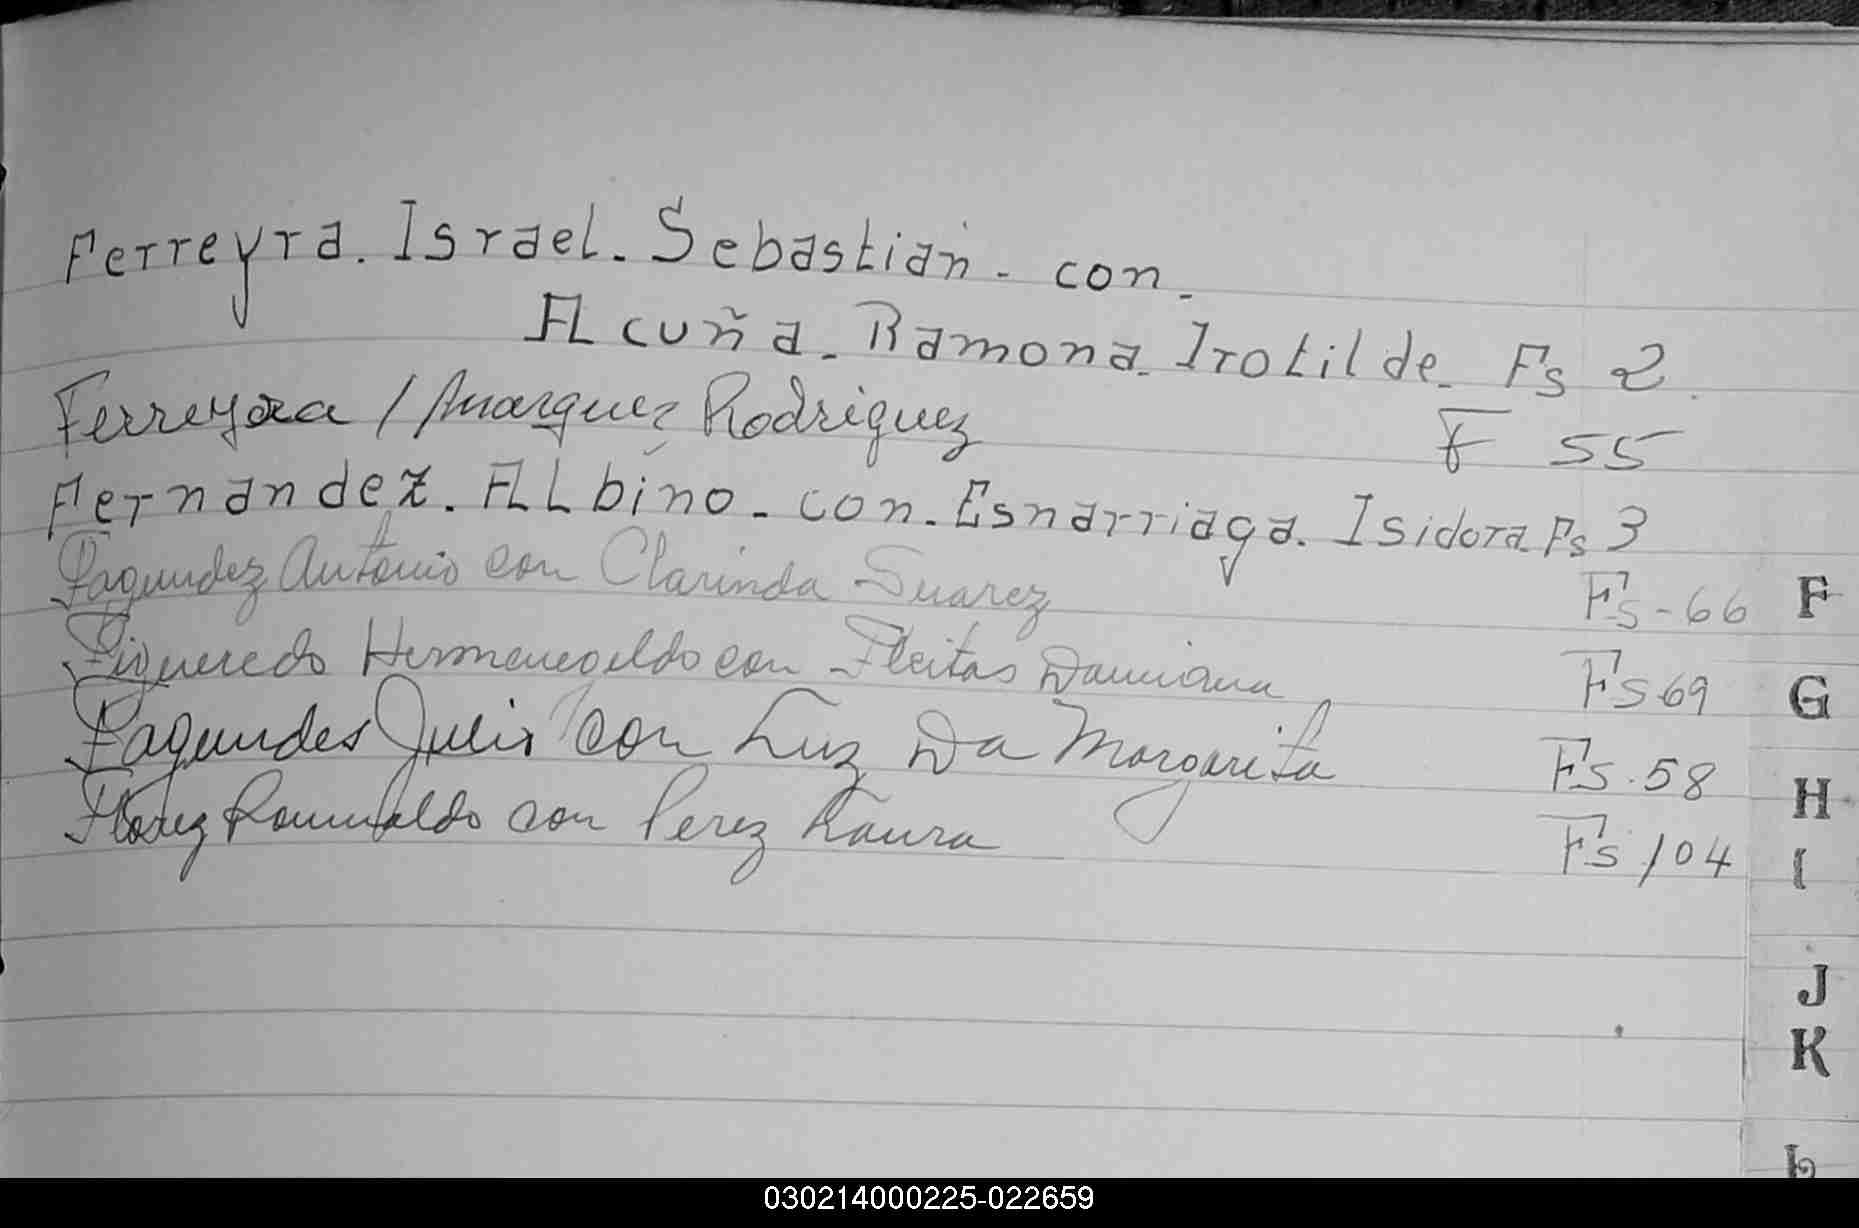 Ferreyra. Israel. Sebastián - con.
Acuña. Ramona. Irotilde. Fs 2.
Ferreyra / Marquez Rodriguez F 55
Fernandez. Albino - con. Esnarriaga. Isidora Fs 3
Fagundez Antonio con Clarinda Suarez Fs-66
Figueredo Hermenegildo con Fleitas Damiana Fs 69
Fagundes Julio con Luz Da Margarita Fs. 58
Florez Romualdo con Perez Laura Fs 104
F
G
H
I
J
K
L
030214000225-022659